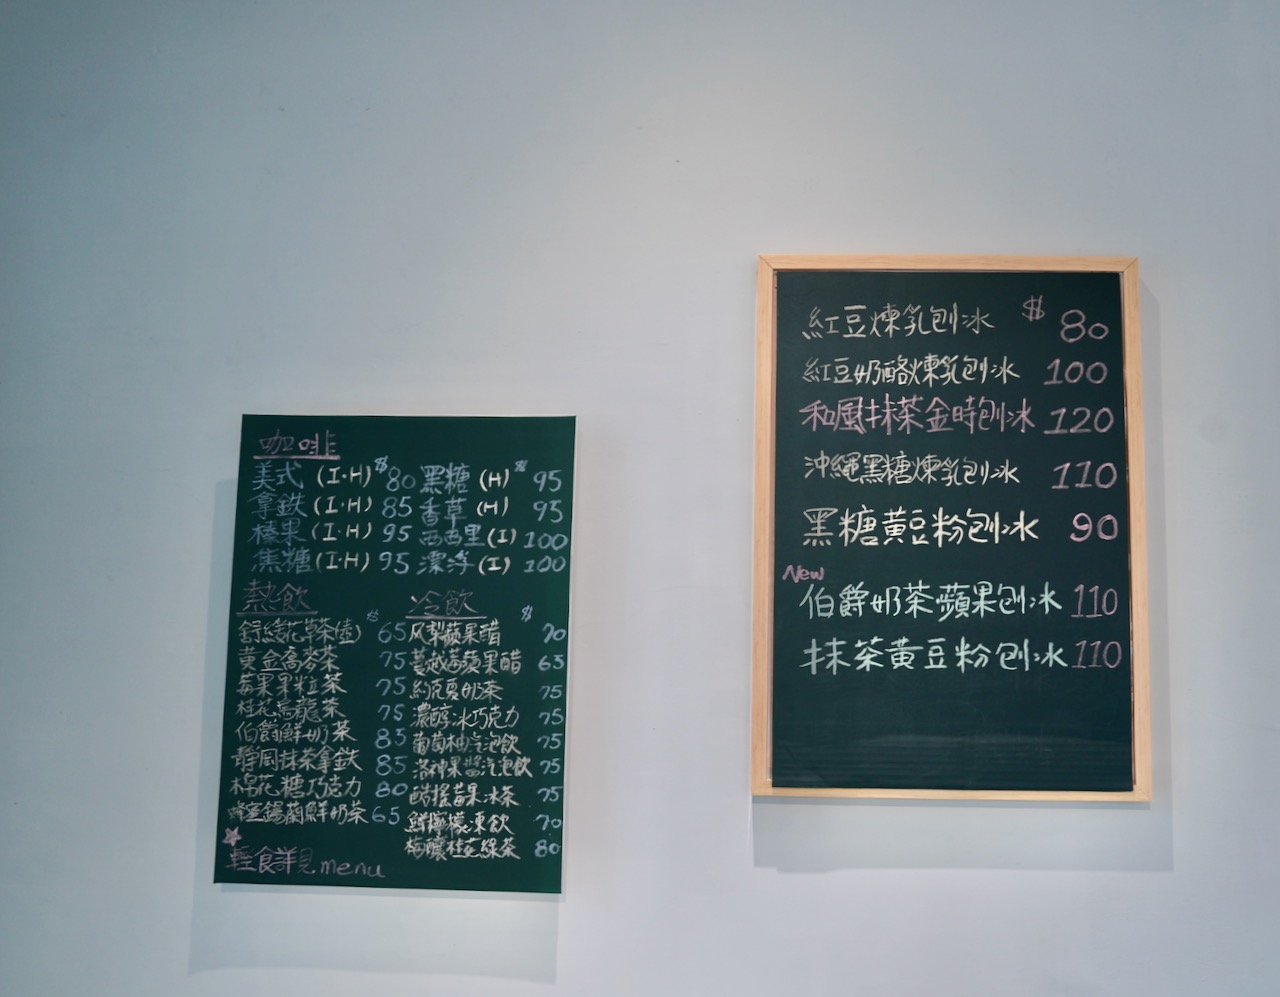 咖啡
美式 (I·H) $80 黑糖 (H) $ 95
拿鐵 (I·H) 85 香草 (H) 95
榛果 (I·H) 95 西西里 (I) 100
焦糖 (I·H) 95 漂浮 (I) 100
熱飲 $
舒緩花草茶(壺) 65
黃金蕎麥茶 75
莓果果粒茶 75
桂花烏龍茶 75
伯爵鮮奶茶 85
靜岡抹茶拿鐵 85
棉花糖巧克力 80
蜂蜜錫蘭鮮奶茶 65
輕食詳見menu
冷飲 $
鳳梨蘋果醋 70
蔓越莓蘋果醋 65
約克夏奶茶 75
濃醇冰巧克力 75
葡萄柚汽泡飲 75
洛神果醬汽泡飲 75
酷搖莓果冰茶 75
鮮檸檬凍飲 70
梅釀桂花綠茶 80
紅豆煉乳刨冰 $ 80
紅豆奶酪煉乳刨冰 100
和風抹茶金時刨冰 120
沖繩黑糖煉乳刨冰 110
黑糖黃豆粉刨冰 90
New
伯爵奶茶蘋果刨冰 110
抹茶黃豆粉刨冰 110